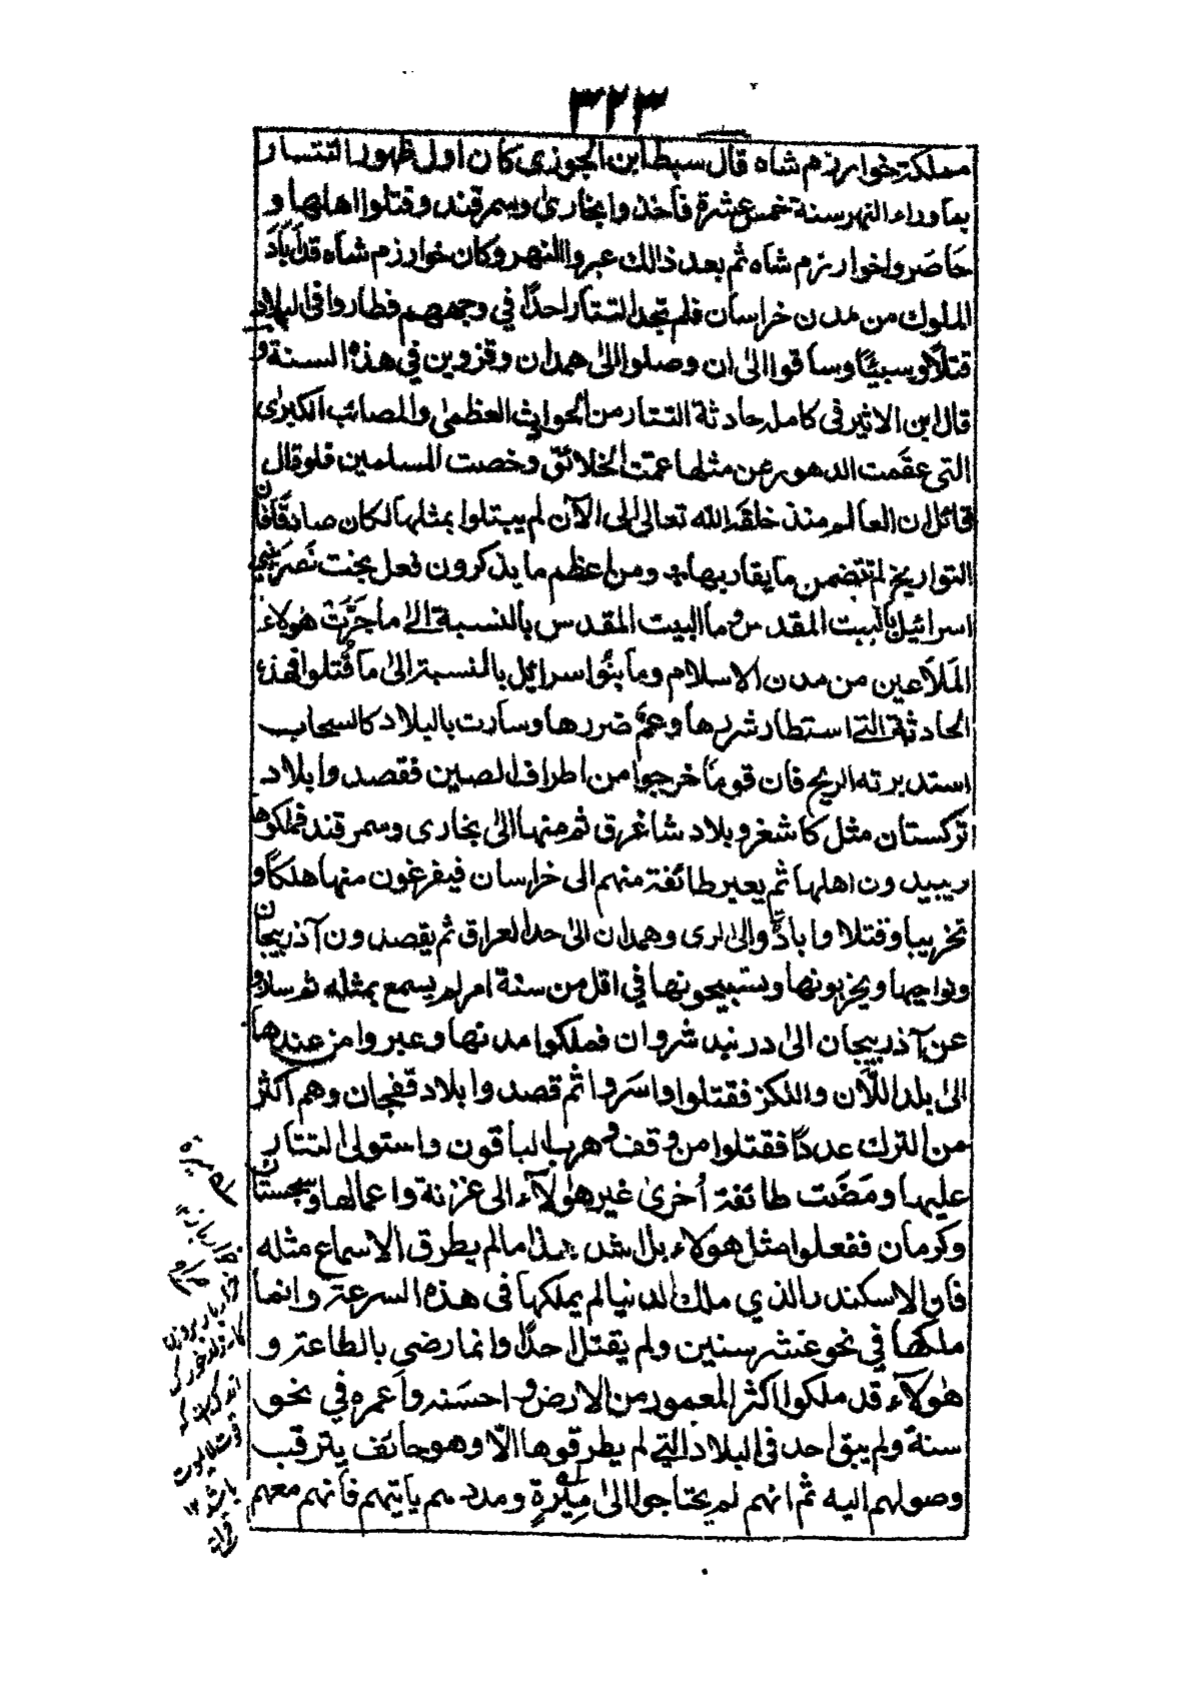 ٣٢٣
مملكة خوارزم شاه قال سبط ابن الجوزى كان اول ظهور التتار
بماوراء النهر سنة خمس عشرة فأخذوا بخارىٰ وسمرقند وقتلوا اهلها و
حَاصَروا خوارزم شاه ثم بعد ذالك عبروا النهر وكان خوارزم شاه قد أَبَادَ
الملوك من مدن خراسان فلم تجد التتار احدًا في وجههم فطاروا فى البلاد
قتلًا وسبيًا وساقوا الىٰ ان وصلوا الىٰ همدان وقزوين في هذه السنة و
قال ابن الاثير فى كامله حادثة التتار من الحوادث العظمىٰ والمصائب الكبرىٰ
التى عقمت الدهور عن مثلها عمّت الخلائق وخصت المسلمين فلو قال
قائل ان العالم منذ خلقه الله تعالى الى الآن لم يبتلوا بمثلها لكان صادقًا فان
التواريخ لم تتضمن ما يقاربها ومن اعظم ما يذكرون فعل بخت نصر ببني
اسرائيل بالبيت المقدس و ما البيت المقدس بالنسبة الىٰ ما خرّبت هٰولاء
المَلاَعين من مدن الاسلام وما بنُوا سرائيل بالنسبة الىٰ ما قُتلوا فهذه
الحادثة التي استطار شررها وعمّ ضررها وسارت بالبلاد كالسحاب
استدبرته الريح فان قومًا خرجوا من اطراف الصين فقصدوا بلاد
تركستان مثل كاشغر و بلاد شاغرق ثم منها الىٰ بخارى وسمرقند فملكوها
ويبيدون اهلها ثم يعبر طائفة منهم الى خراسان فيفرغون منها هلكًا و
تخريبا وقتلا وابادًّا والىٰ لرى وهمدان الىٰ حد العراق ثم يقصدون آذربيجان
ونواحيها ويخربونها ويستبيحونها في اقل من سنة امر لم يسمع بمثله ثم ساروا
عن آذربيجان الىٰ دربند شروان فملكوا مدنها وعبروا من عندها
الىٰ بلد اللّان واللكز فقتلوا واسَروا ثم قصدوا بلاد قفجان وهم اكثر
من الترك عددًا فقتلوا من وقف و هرب الباقون واستولى التتار
عليها ومَضَت طائفة اُخرىٰ غير هٰولآء الى غزنة واعمالها وسجستان
وكرمان ففعلوا مثل هٰولاء بل اشد هذا ما لم يطرق الاسماع مثله
فان الاسكندر الذي ملك الدنيا لم يملكها فى هذه السرعة وانما
ملكها في نحو عشر سنين ولم يقتل احدًا وانما رضي بالطاعة و
هٰولآء قد ملكوا اكثر المعمور من الارض و احسَنه واَعمره في نحو
سنة ولم يبق احد فى البلاد التي لم يطرقوها الّا وهو خائف يترقب
وصولهم اليه ثم انهم لم يحتاجوا الىٰ مِيْرةٍ ومددهم ياتيهم فانهم معهم